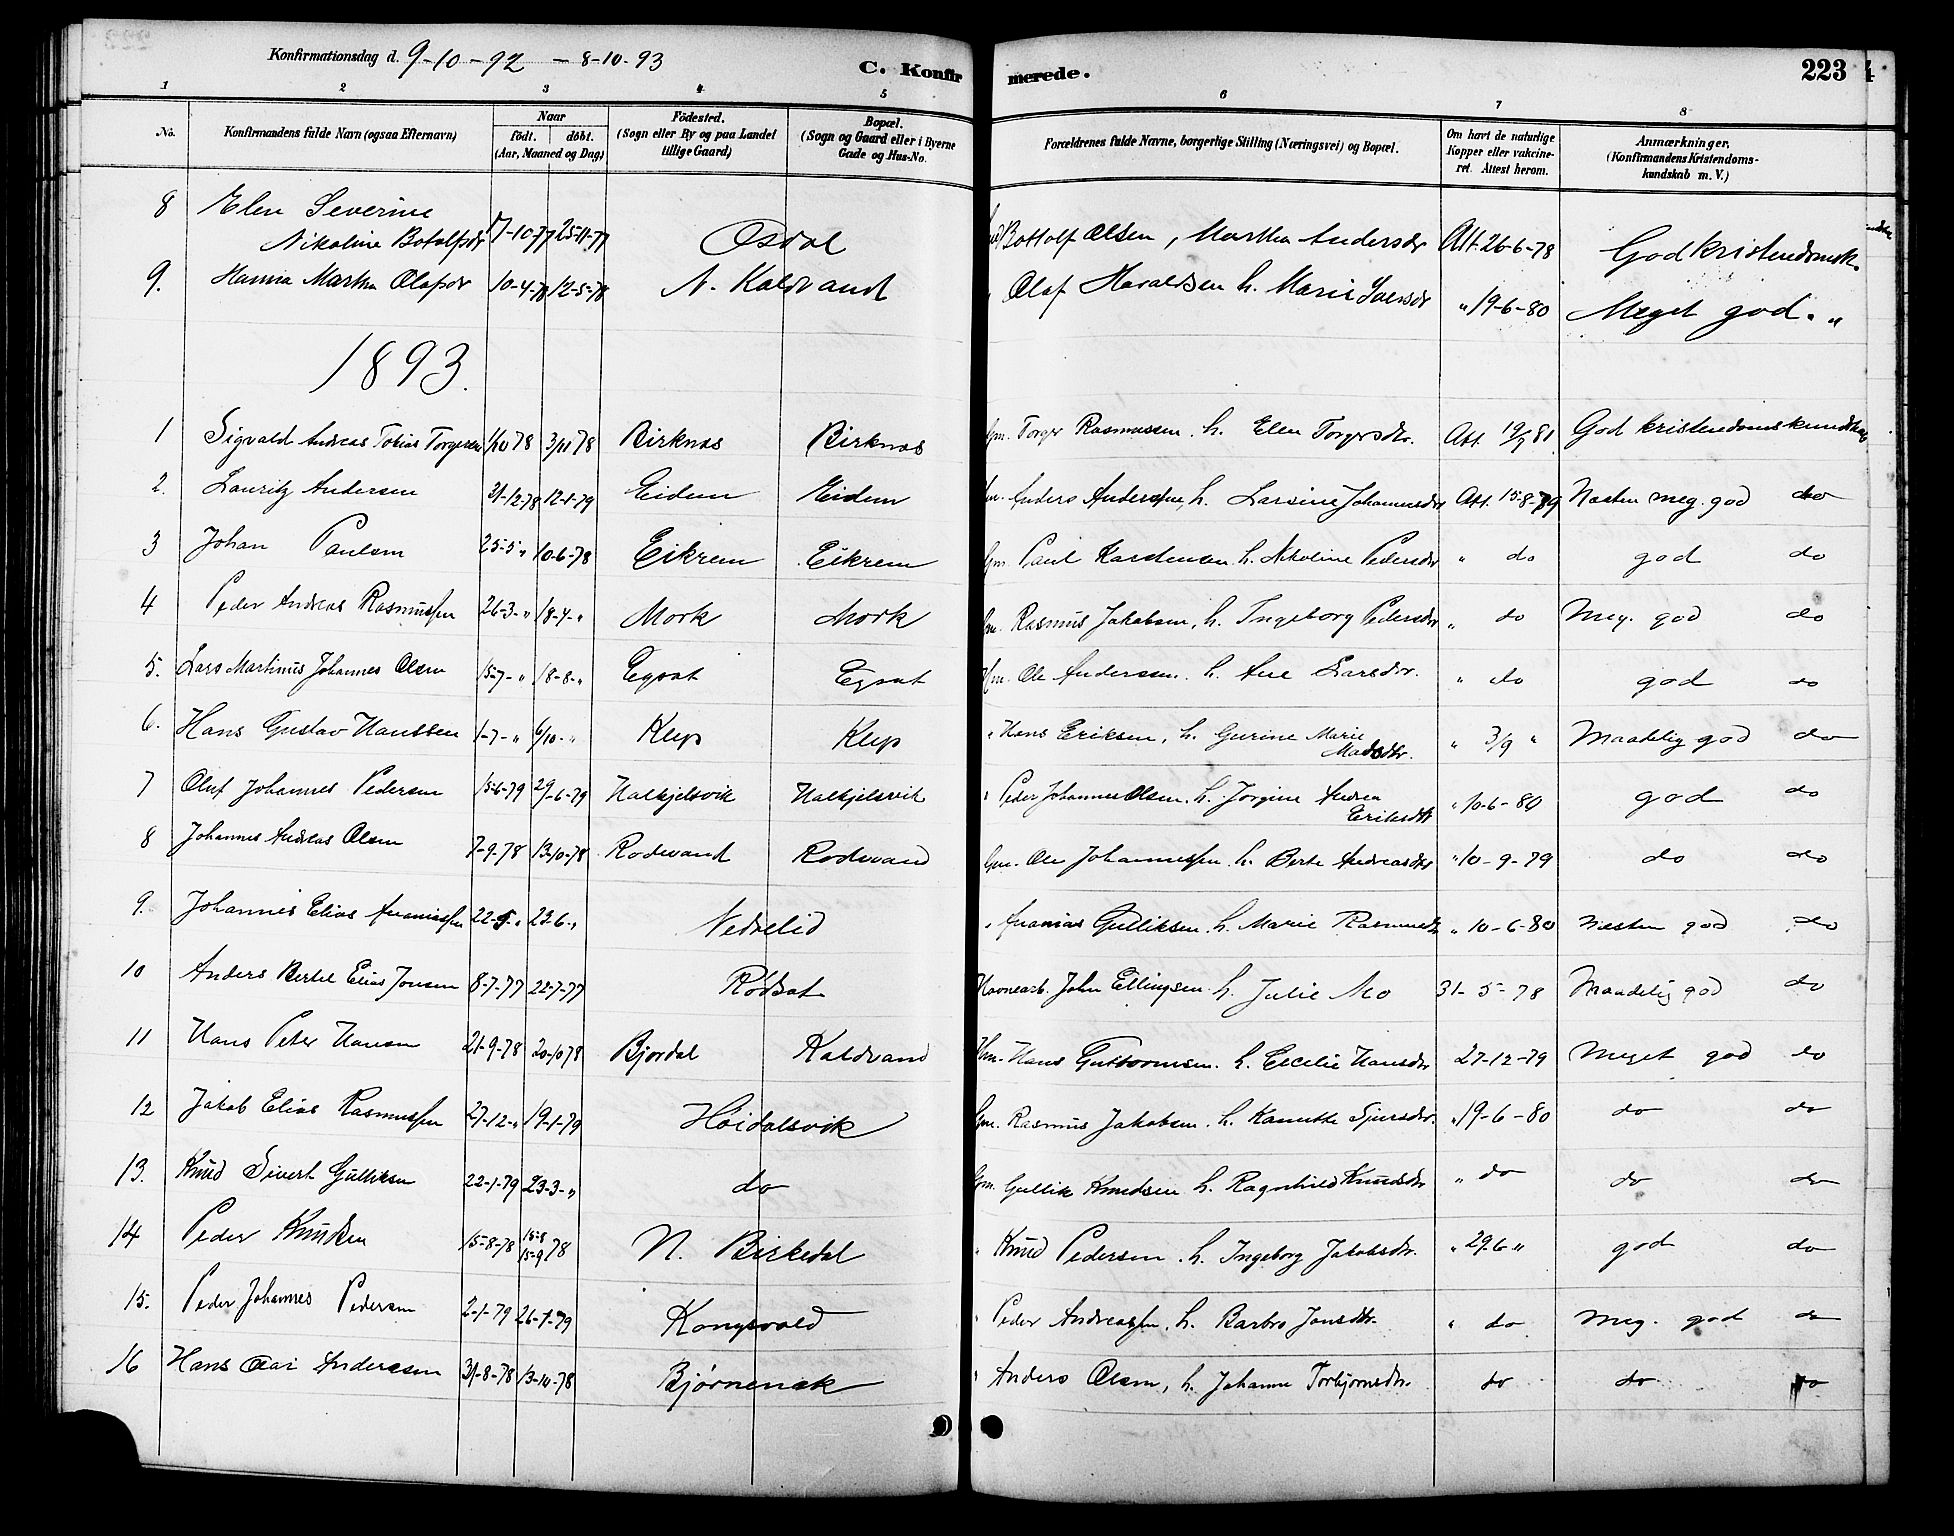 Konfirmationsdag d. 9-10-92 - 8-10-93 C. Konfirmerede. 223
1 2 3 4 5 6 7 8
No. Konfirmandens fulde Navn (ogsaa Efternavn) Naar født. døbt. (Aar, Maaned og Dag) Födested. (Sogn eller By og paa Landet tillige Gaard) Bopæl. (Sogn og Gaard eller i Byerne Gade og Hus-No. Forældrenes fulde Navne, borgerlige Stilling (Næringsvei) og Bopæl. Om havt de naturlige Kopper eller vakcineret. Attest herom. Anmærkninger. (Konfirmandens Kristendomskundskab m. V.)
8 Elen Severine
Nikoline Botolfsdr 17-10-77 25-11-77 Osdal Bottolf Olsen, Martha Andersdr Att. 26-6-78 God kristendomsk.
9. Hanna Martha Olafsdr 10-4-78 12-5-78 N. Kaldvand Olaf Haraldsen h. Marie Iversdr " 19-6-80 Meget god. "
1893.
1 Sigvald Andreas Tobias Torgersen 1/10 78 3/11 78 Birknes Birknes Gm. Torger Rasmussen. h. Elen Torgersdtr. Att. 19/7 81. God kristendomskundskab
2. Lauritz Andersen 31-12-78 12-1-79 Eidem Eidem Gm. Anders Anderssen, h. Larsine Johannesdr Att. 15-8-79 Næsten meg. god do
3 Johan Paulsen 25-5-" 10-6-78 Eikrem Eikrem Gm. Paul Karstensen h. Nikoline Pedersdtr " do god do
4 Peder Andreas Rasmussen 26-3-" 18-4-" Mork Mork Gm. Rasmus Jakobsen, h. Ingeborg Pedersdr " do Meg. god do
5. Lars Martinus Johannes Olsen 15-7-" 18-8-" Egset Egset Hm. Ole Andersen. h. Ane Larsdtr. " do god do
6. Hans Gustav Hanssen 1-7-" 6/10-" Klep Klep " Hans Eriksen, h. Gurine Marie
Madsdtr. " 3/9 " Maadelig god do
7 Oluf Johannes Pedersen 15-6-79 29-6-79 Halkjelsvik Halkjelsvik " Peder Johannes Olsen. h. Jorgine Andrea
Eriksdtr " 10-6-80 god do
8 Johannes Andreas Olsen 7-9-78 13-10-78 Rodevand Rodevand Gm. Ole Johannessen h. Berte Andreasdtr " 10-9-79 do do
9. Johannes Elias Ananiassen 22-5-" 23-6-" Nedrelid " Ananias Gulliksen. h. Marie Rasmusdtr " 10-6-80 næsten god do
10 Anders Bertel Elias Jonsen 8-7-77 22-7-77 Rodset Havnearb. John Ellingsen h. Julie Mo 31-5-78 Maadelig god do
11 Hans Peter Hansen 21-9-78 20-10 78 Bjordal Kaldvand Hm. Hans Guttormsen. h. Cecilie Hansdtr 27-12-79 Meget god do
12 Jakob Elias Rasmussen 27-12-" 19-1-79 Höidalsvik Gm. Rasmus Jakobsen. h. Kanutte Sjursdtr. " 19-6-80 do do
13. Knud Sivert Gulliksen 22-1-79 23-3-" do Gm. Gullik Knudsen h. Ragnhild Knudsdtr " do do do
14 Peder Knudsen 15-8-78 15-8
15-9 78 N. Birkedal " Knud Pedersen. h. Ingeborg Jakobsdtr. " 29-6 " god do
15. Peder Johannes Pedersen 2-1-79 26-1-79 Kongsvold " Peder Andreassen, h. Barbro Jonsdtr. " do meg. god do
16 Hans Andersen 31-8-78 13-10-78 Bjørnenak " Anders Olsen, h. Johanne Torbjornsdtr. do do do